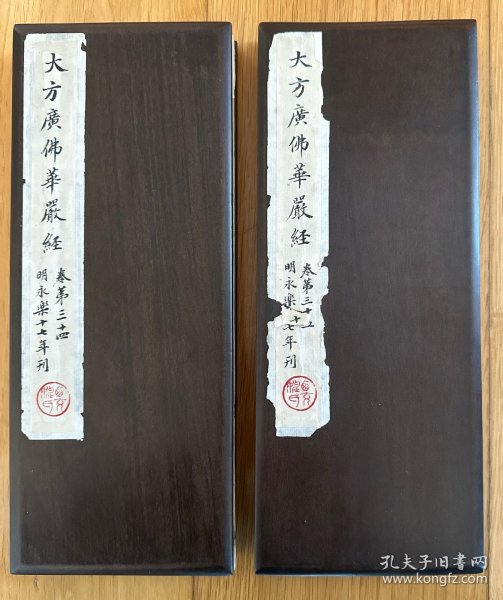 大方廣佛華嚴経
卷第三十四
明永樂十七年刊
大方廣佛華嚴経
卷第三十
明永樂十七年刊
孔夫子旧书网
www.kongfz.com